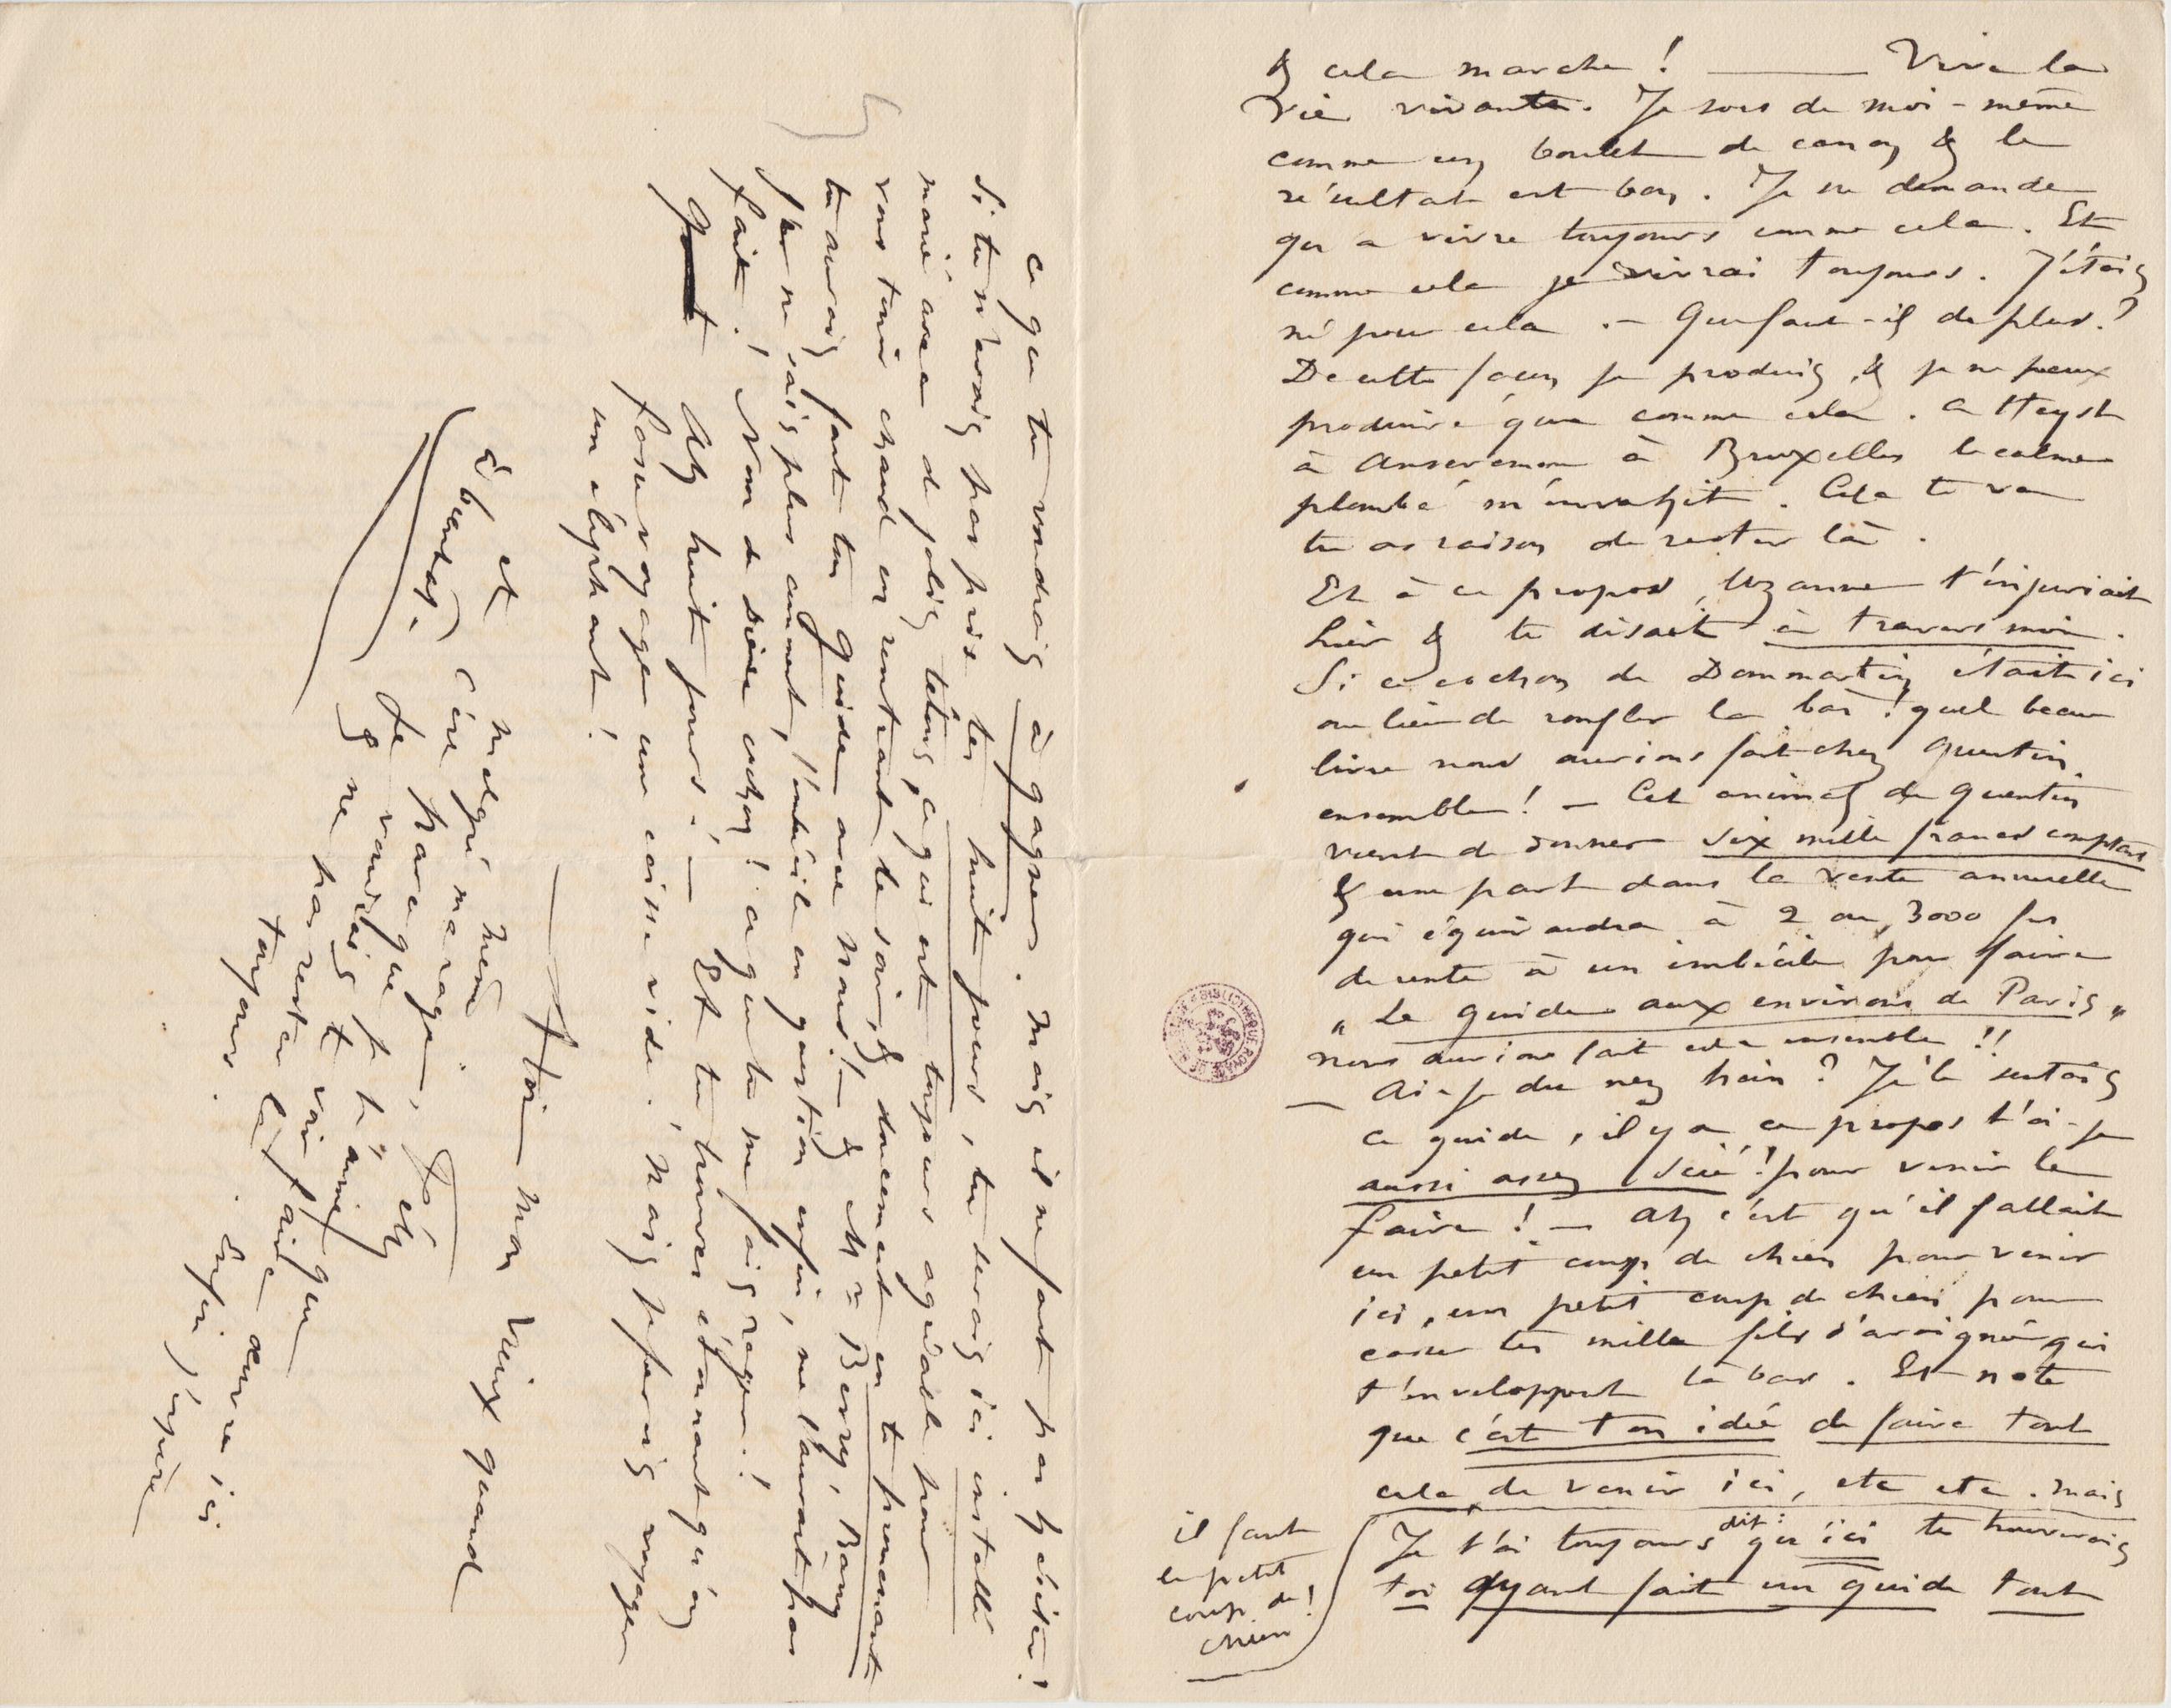 & cela marche ! —— Vive la
vie vivante. Je sors de moi-même
comme un boulet de canon & le
résultat est bon. Je ne demande
qu'a vivre toujours comme cela. Et
comme cela je vivrai toujours. J'étais
né pour cela. — Que faut-il de plus ?
De cette façon je produis, & je ne peux
produire que comme cela. a Heyst
à Anseremme à Bruxelles le calme
plombé m'envahit. Cela te va
tu as raison de rester là.
Et à ce propos, Uzanne t'injuriait
hier & te disait à travers moi.
Si ce cochon de Dommartin était ici
au lieu de ronfler la bas ! quel beau
livre nous aurions fait chez Quentin
ensemble ! — Cet animal de Quentin
vient de donner six mille francs comptant
& une part dans la vente annuelle
qui équivaudra à 2 ou 3000 frs
de rente à un imbécile pour faire
" Le guide aux environs de Paris "
nous aurions fait cela ensemble !!
— Ai-je du nez hein ? Je le sentais
ce guide, il y a ce propos t'ai-je
aussi assez scié ! pour venir le
faire ! — Ah c'est qu'il fallait
un petit coup de chien pour venir
ici, un petit coup de chien pour
casser les mille fils d'araignée qui
t'enveloppent là bas. Et note
que c'est ton idée de faire tout
cela, de venir ici, etc etc. mais
il faut
le petit
coup de !
chien
Je t'ai toujours dit : qu'ici tu trouverais
toi ayant fait un guide tout
ce que tu voudrais à gagner. Mais il ne faut pas hésiter !
Si tu n'avais pas pris tes huit jours, tu serais ici installé
marié avec de jolis tétons, ce qui est toujours agréable pour
vous tenir chaud en rentrant le soir, & doucement en te promenant
tu aurais fait ton guide avec nous ! — & Mr Berry, Barry
je ne sais plus comment, l'imbécile en question enfin, ne l'aurait pas
fait ! Nom de Dieu cochon ! ce que tu me fais rager !
Ah huit jours ! — Et tu trouves étonnant qu'on
fasse voyager une caisse vide. Mais je ferais voyager
un éléphant !
— A toi mon vieux quand
même
& malgré ma rage, Fély
C'est parce que je t'aime
& bcoup. Je voudrais te voir que
& ne pas rester là faire œuvre ici
toujours. Enfin j'espère